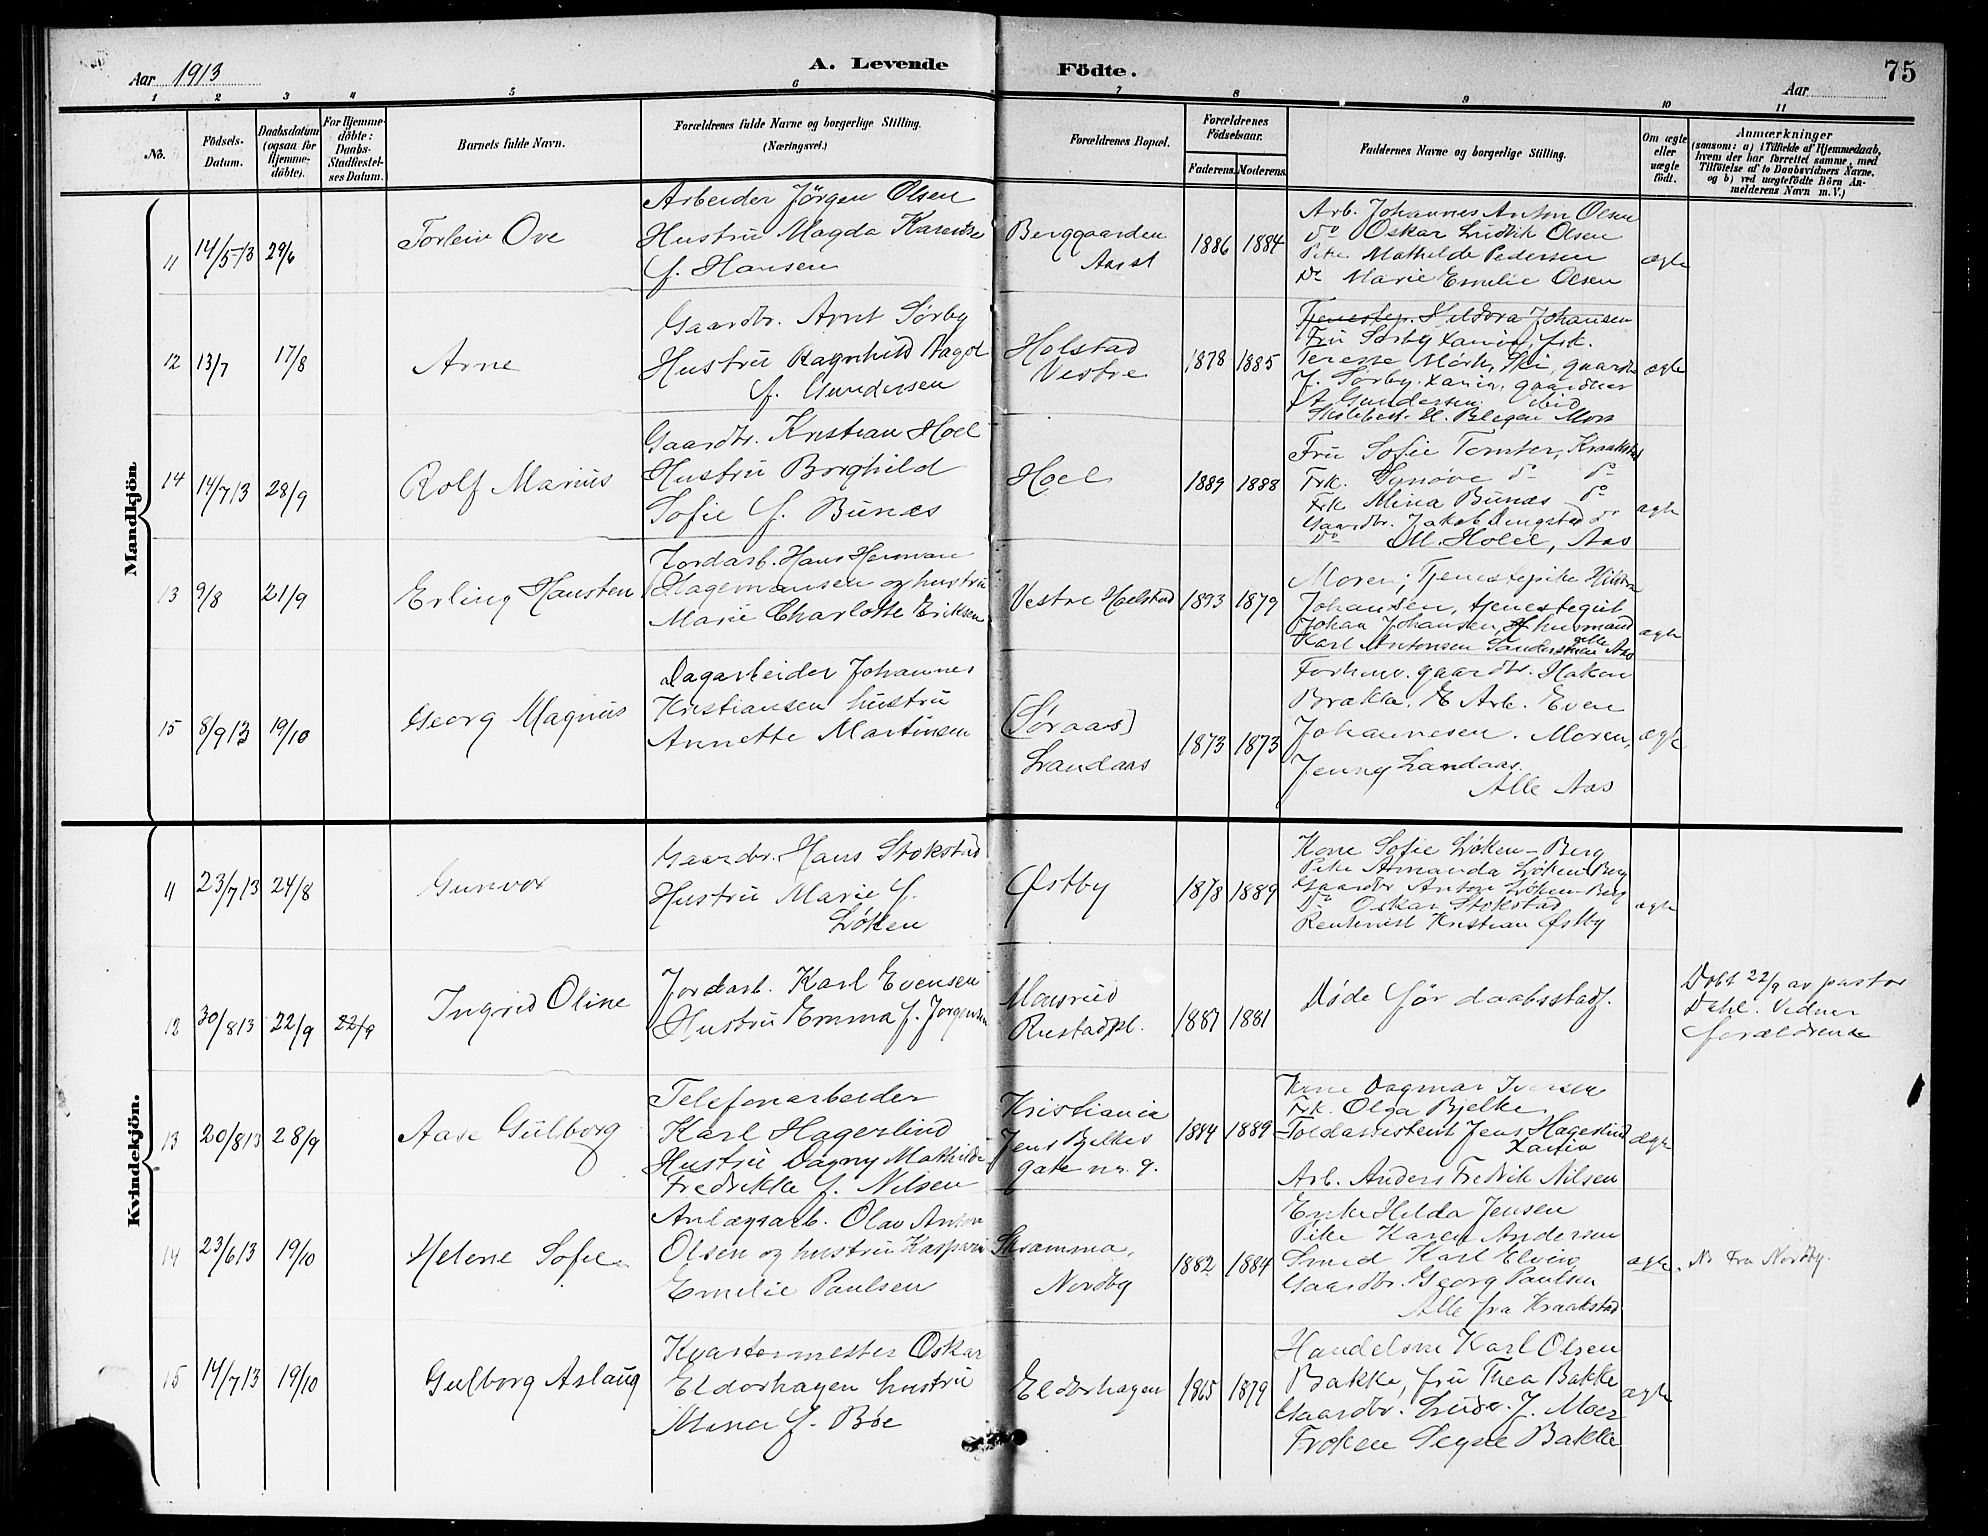 Aar 1913
A. Levende
Födte.
Aar
75
1 2 3 4 5 6 7 8 9 10 11
No.
Födsels-
Datum.
Daabsdatum
(ogsaa for
Hjemme-
döbte).
For Hjemme-
döbte:
Daabs-
Stadfæstel-
ses Datum.
Barnets fulde Navn.
Forældrenes fulde Navne og borgerlige Stilling.
(Næringsvei.)
Forældrenes Bopæl.
Forældrenes
Födselsaar.
Faderens.
Moderens.
Faddernes Navne og borgerlige Stilling.
Om ægte
eller
uægte
födt.
Anmærkninger
(saasom: a) i Tilfælde af Hjemmedaab,
hvem der har forrettet samme, med
Tilföielse af to Daabsvidners Navne,
og b) ved uægtefödte Börn An-
melderens Navn m. V.)
Mandkjön.
11
14/5-13
29/6
Torleiv Ove
Arbeider Jörgen Olsen
Hustru Magda
f. Hansen
Berggaarden
Aas st
1886
1884
Arb. Johannes Anton Olsen
Do Oskar Ludvik Olsen
Pike Mathilde Pedersen
Do Marie Emilie Olsen
ægte
12
13/7
17/8
Arne
Gaardbr. Arnt Sørby
Hustru Ragnhild
f. Gundersen
Holstad
Vestre
1878
1885
Tjenestep. Hildora Johansen
Fru Sørby Xania, frk.
Terese Mørk, Ski, gaardbr
J. Sørby. Xania, gaardbr
A Gundersen
H. Blegen Moss
ægte
14
14/7 13
28/9
Rolf Marius
Gaardbr. Kristian Hoel
Hustru Borghild
Sofie f. Bunæs
Hoel
1889
1888
Fru Sofie Tomter, Kraakstad
Frk. Synøve do do
Frk Mina Bunæs do
Gaardbr. Jakob do
Do M. Holil, Aas
ægte
13
9/8
21/9
Erling Hansten
Jordarb. Hans Herman
Hagemansen og hustru
Marie Charlotte Eriksen
Vestre Holstad
1893
1879
Moren; Tjenestepike Hildora
Johansen, tjenestegut
Johan Johansen, husmand
Karl Antonsen alle Aas
ægte
15
8/9 13
19/10
Georg Magnus
Dagarbeider Johannes
Kristiansen hustru
Annette Martinsen
(Søraas)
Landaas
1873
1873
Forhenv. gaardbr. Hakon
Brække, E Arb. Even
Johannesen. Moren,
Jenny Landaas.
Alle Aas
ægte
Kvindekjön.
11
23/7 13
24/8
Gunvor
Gaardbr. Hans Stokstad
Hustru Marie f.
Løken
Østby
1878
1889
Kone Sofie Løken-Berg
Pike Amanda Løken Berg
Gaardbr Anton Løken-Berg
Do Oskar Stokstad
Rentenist Kristian Østby
ægte
12
30/8 13
22/9
22/9
Ingrid Oline
Jordarb. Karl Evensen
Hustru Emma f. Jørgensen
Monsrud
Rustadpl.
1887
1881
Døde før daabsstadf.
Døbt 22/9 av pastor
Dehl. Vidner
forældrene
13
20/8 13
28/9
Aase Gulborg
Telefonarbeider
Karl Hagerlind
Hustru Dagny Mathilde
Fredrikke f. Nilsen
Kristiania
Jens Bjelkes
gate nr. 9.
1884
1889
Kone Dagmar Iversen
Frk. Olga Bjelke
Toldassistent Jens Hagerlind
Xania
Arb. Anders Fredrik Nilsen
ægte
14
23/6 13
19/10
Helene Sofie
Anlægsarb. Olav Anton
Olsen og hustru Kasparu
Emilie Paulsen
Skramma,
Nordby
1882
1884
Enke Hilda Jensen
Pike Karen Andersen
Smed Karl Elving
Gaardbr. Georg Paulsen
Alle fra Kraakstad
ægte.
No Fra Nordby.
15
14/7 13
19/10
Gulborg Aslaug
Kvartermester Oskar
Eldorhagen hustru
Mina f. Bøe
Eldorhagen
1865
1879
Handelsm Karl Olsen
Bakke, fru Thea Bakke
Gaardbr. Ludv. J. Moer
Frøken Signe Bakke
ægte